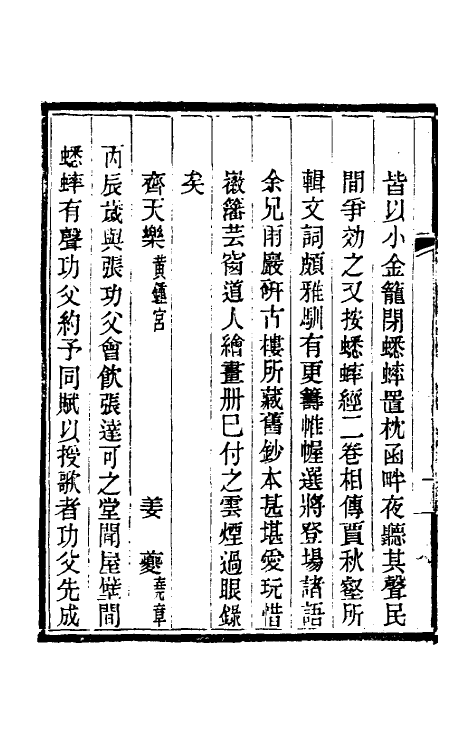 皆以小金籠閉蟋蟀置枕函畔夜聽其聲民
間爭効之又按蟋蟀經二卷相傳賈秋壑所
輯文詞頗雅馴有更籌帷幄選將登場諸語
余兄雨巖硏古樓所藏舊鈔本甚堪愛玩惜
嶶籓芸窗道人繪畫册已付之雲煙過眼錄
矣
齊天樂黃鍾宮　姜夔堯章
丙辰歲與張功父會飲張達可之堂聞屋壁間
蟋蟀有聲功父約予同賦以授歌者功父先成